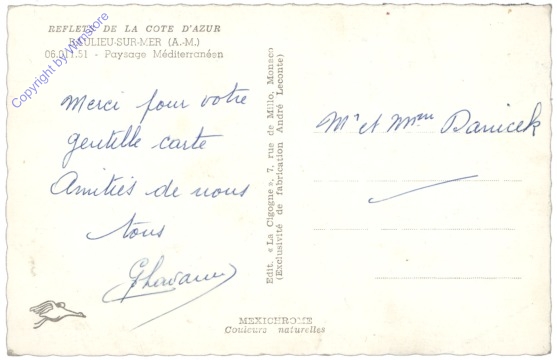 REFLETS DE LA COTE D'AZUR
BEAULIEU-SUR-MER (A.-M.)
06.011.51 - Paysage Méditerranéen
Copyright by Winstore
Merci pour votre
gentille carte
Amitiés de nous
tous
Edit. « La Cigogne », 7, rue de Millo, Monaco
(Exclusivité de fabrication André Leconte)
Mr et Mme Danicek
MEXICHROME
Couleurs naturelles